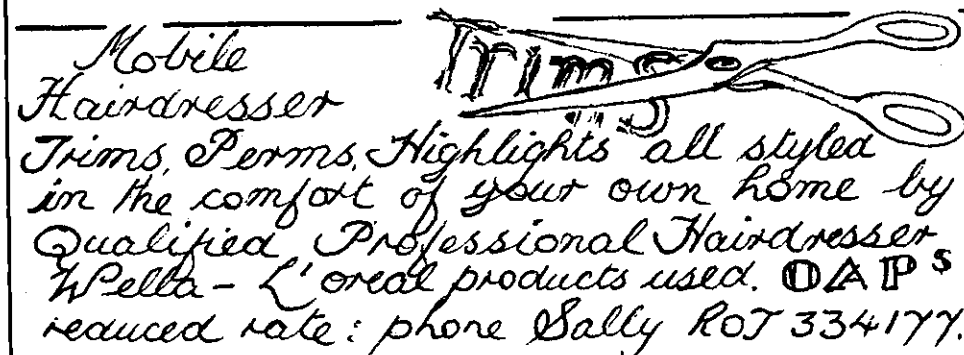 Mobile
Trims
Hairdresser
Trims, Perms, Highlights all styled
in the comfort of your own home by
Qualified Professional Hairdresser
Wella - L'oreal products used. OAPs
reduced rate: phone Sally ROT 334177.